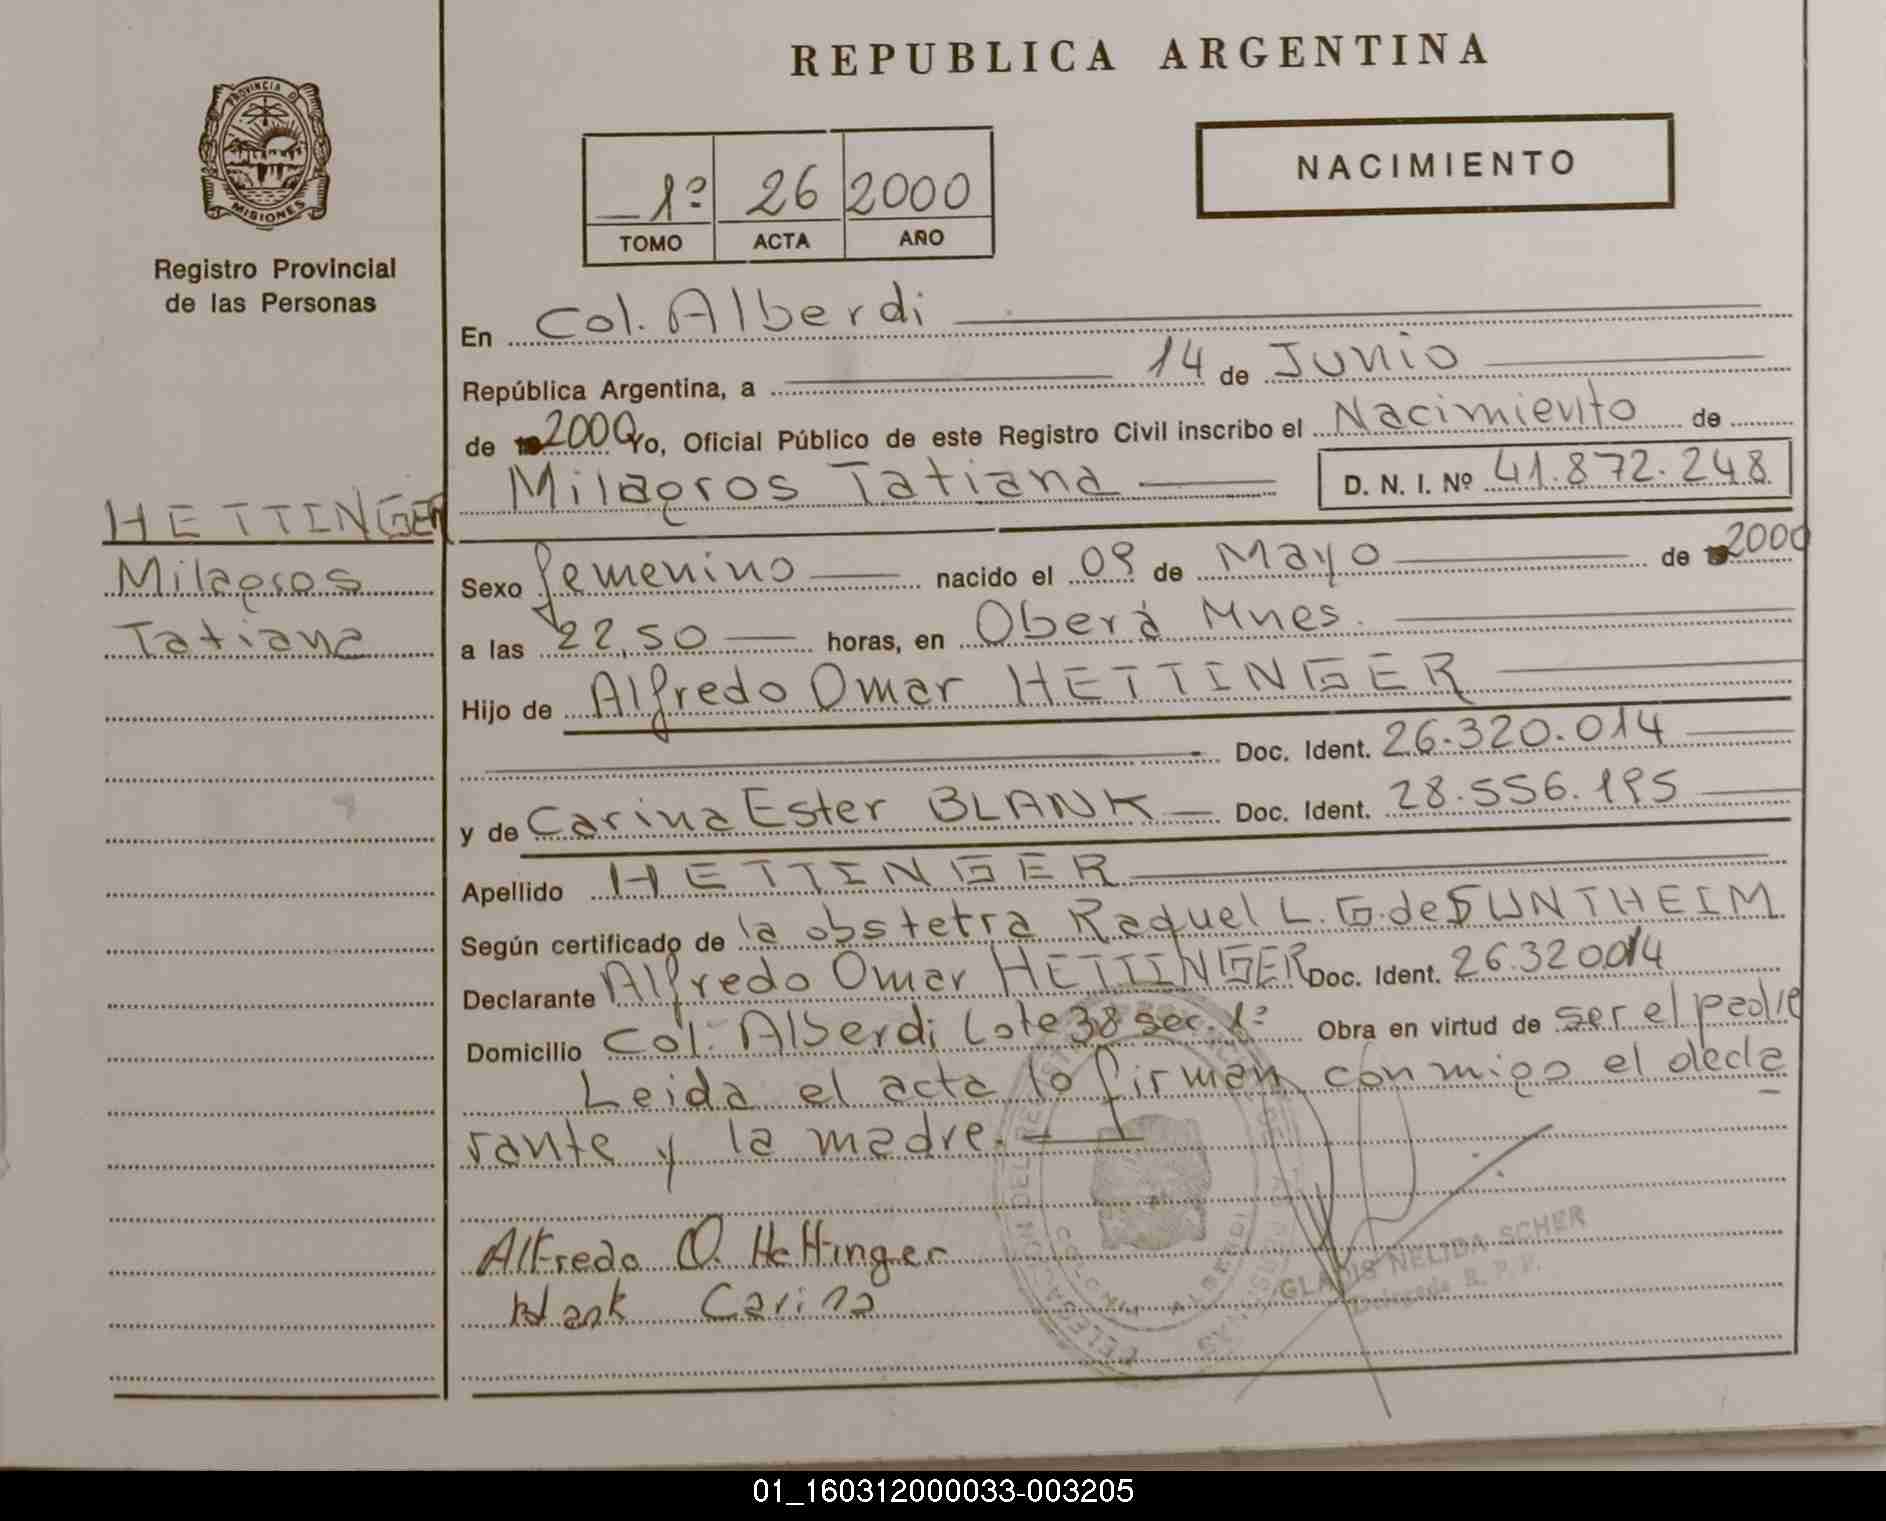 REPUBLICA ARGENTINA
PROVINCIA DE
MISIONES
Registro Provincial
de las Personas
1º 26 2000
TOMO ACTA AÑO
NACIMIENTO
En Col. Alberdi
República Argentina, a 14 de Junio
de 2000 Yo, Oficial Público de este Registro Civil inscribo el Nacimiento de
Milagros Tatiana D. N. I. Nº 41.872.248
HETTINGER
Milagros
Tatiana
Sexo femenino nacido el 09 de Mayo de 2000
a las 22,50 horas, en Oberá Mnes.
Hijo de Alfredo Omar HETTINGER
Doc. Ident. 26.320.014
y de Carina Ester BLANK Doc. Ident. 28.556.195
Apellido HETTINGER
Según certificado de la obstetra Raquel L. G. de SUNTHEIM
Declarante Alfredo Omar HETTINGER Doc. Ident. 26.320014
Domicilio Col. Alberdi Lote 38 sec. 1º Obra en virtud de ser el padre
Leida el acta lo firman conmigo el decla
rante y la madre.
Alfredo O. Hettinger
Blank Carina
GLADIS NELIDA SCHER
Delegada R. P. P.
01_160312000033-003205